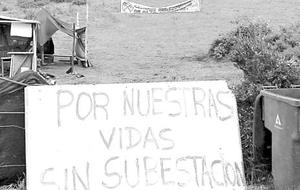 POR NUESTRAS
VIDAS
SIN SUBESTACION